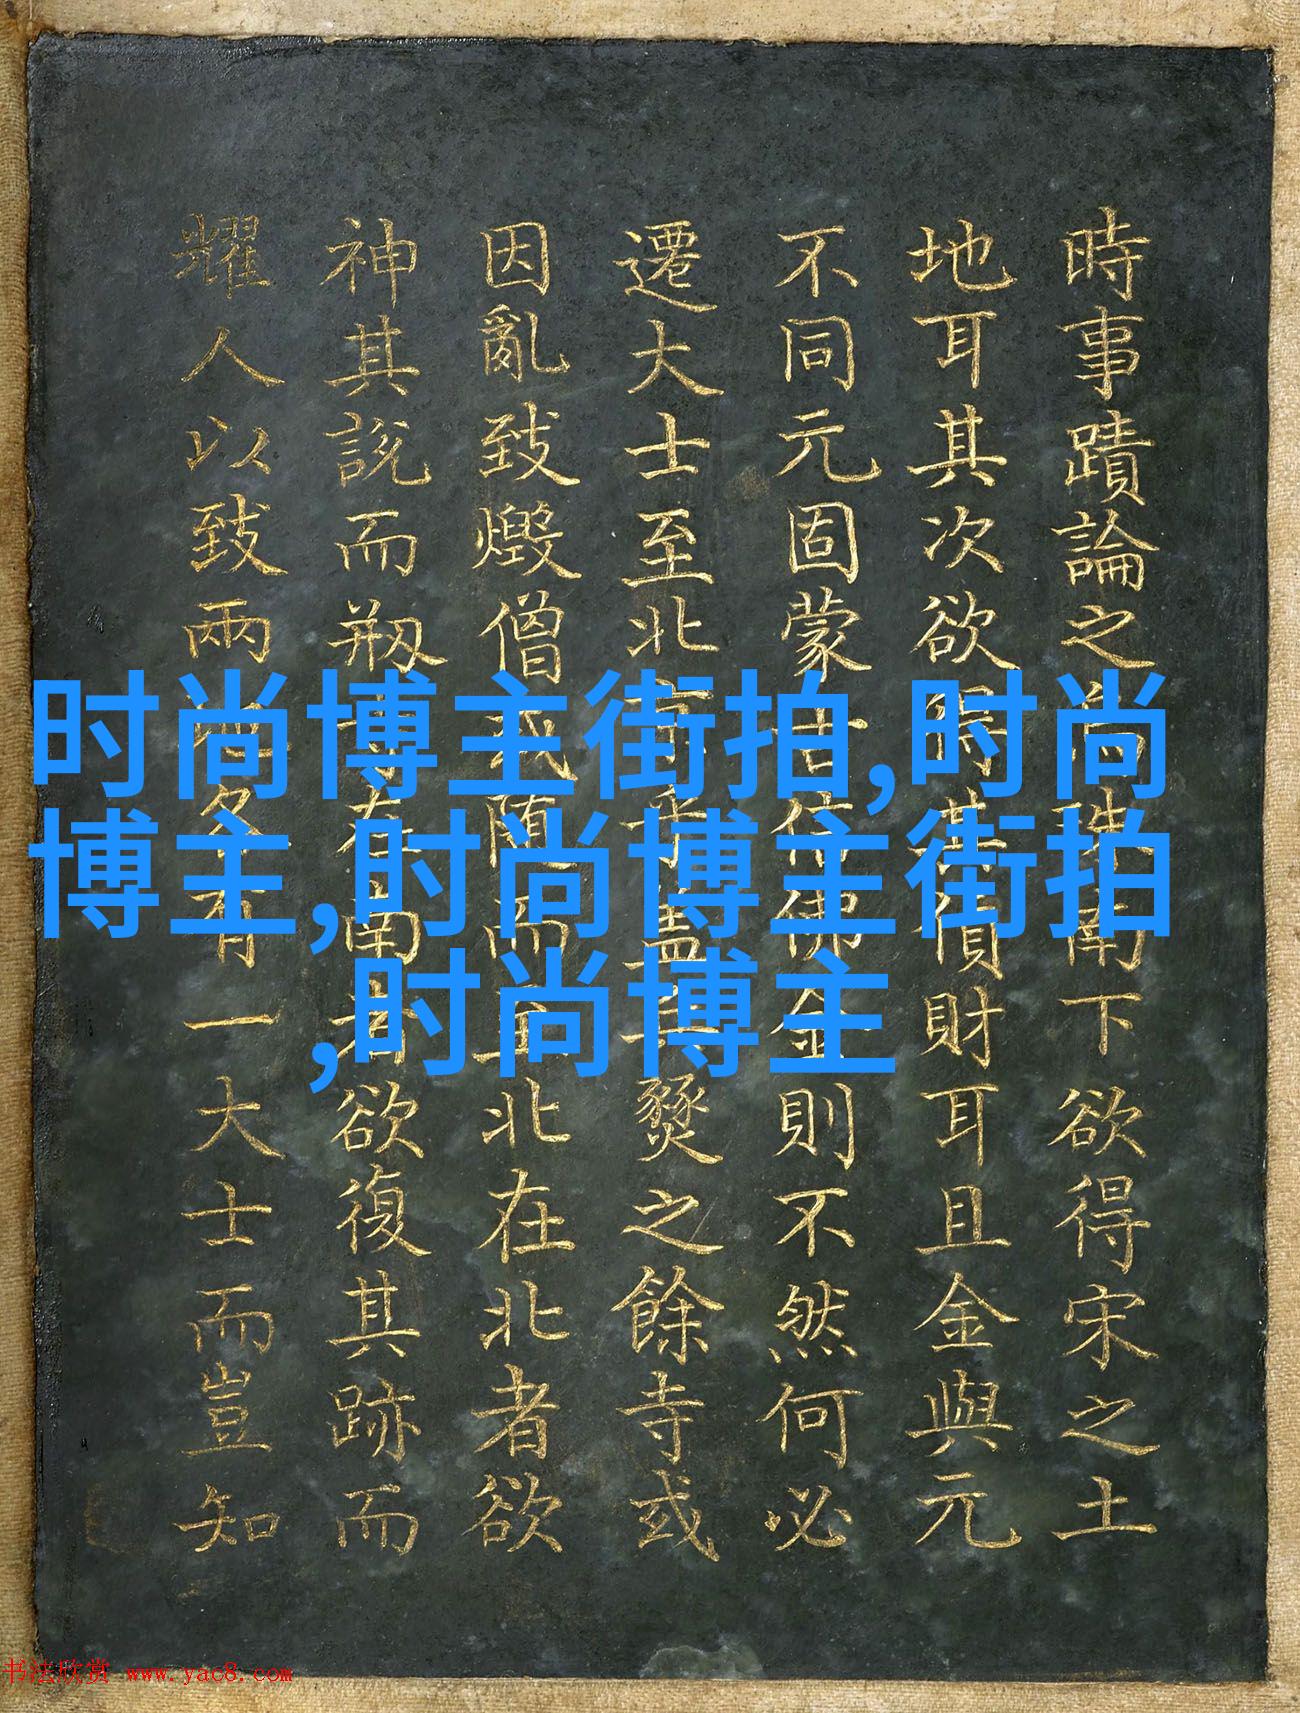 時事蹟論之南下欲得宋之土
地耳其次欲其償財耳且金與元
不同元固蒙古信佛金則不然何必
遷大士至北京乎蓋兵燹之餘寺或
因亂致燬僧或随而至北在北者欲
神其說而刱在南者欲復其跡而
耀人以致兩地各有一大士而豈知
时尚博主街拍,时尚
博主,时尚博主街拍
,时尚博主
书法欣赏 www.yac8.com